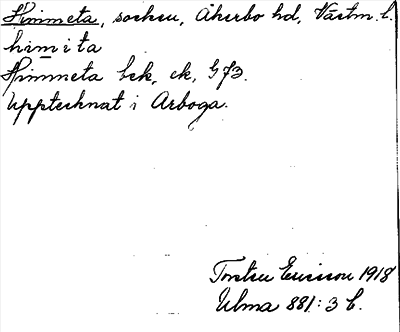 Himmeta, socken, Åkerbo hd, Västm. l.
him i ta
Himmeta bek, ek, G73.
Upptecknat i Arboga.
Torsten Ericsson 1918
Ulma 881:3 b.